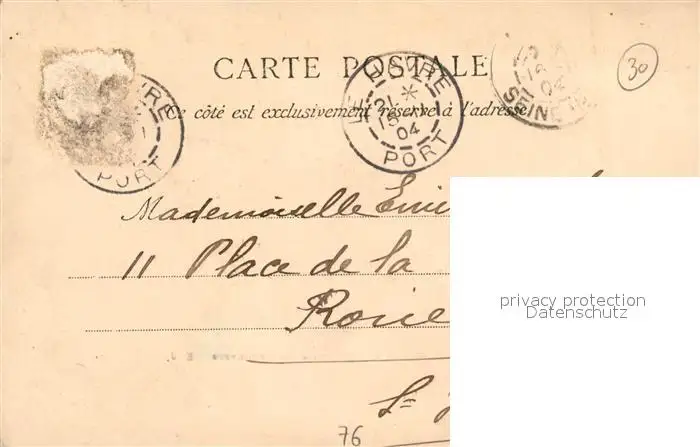 CARTE POSTALE
Ce côté est exclusivement réservé à l'adresse
LE HAVRE
PORT
15
04
HAVRE
PORT
04
SEINE
30
Mademoiselle
11 Place de la
privacy protection
Datenschutz
76